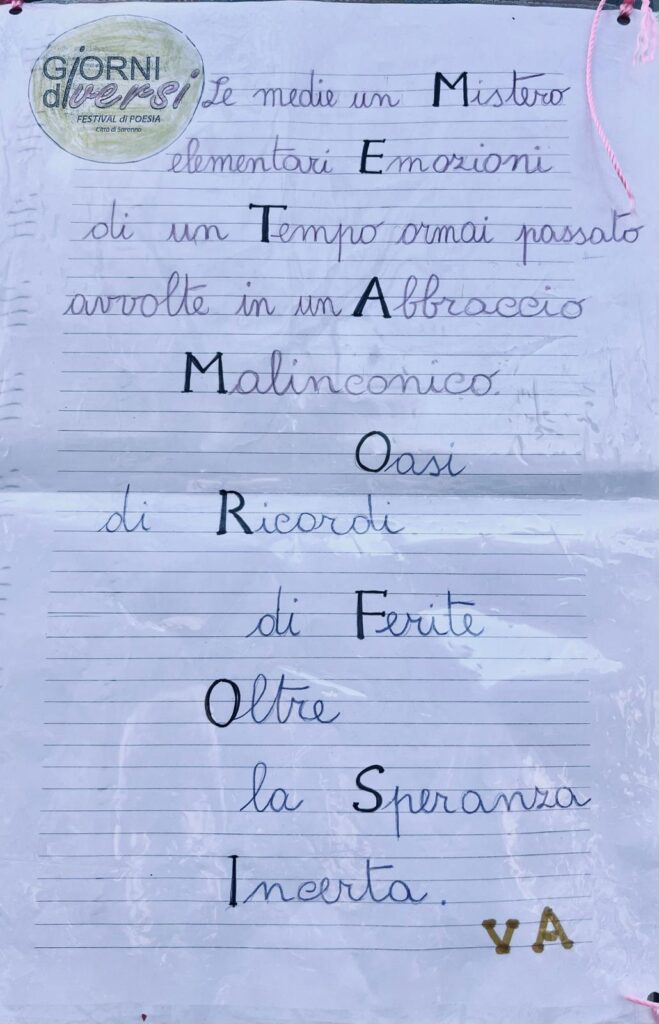 GIORNI
diversi
FESTIVAL di POESIA
Città di Saronno
Le medie un Mistero
elementari Emozioni
di un Tempo ormai passato
avvolte in un Abbraccio
Malinconico.
Oasi
di Ricordi
di Ferite
Oltre
la Speranza
Incerta.
VA